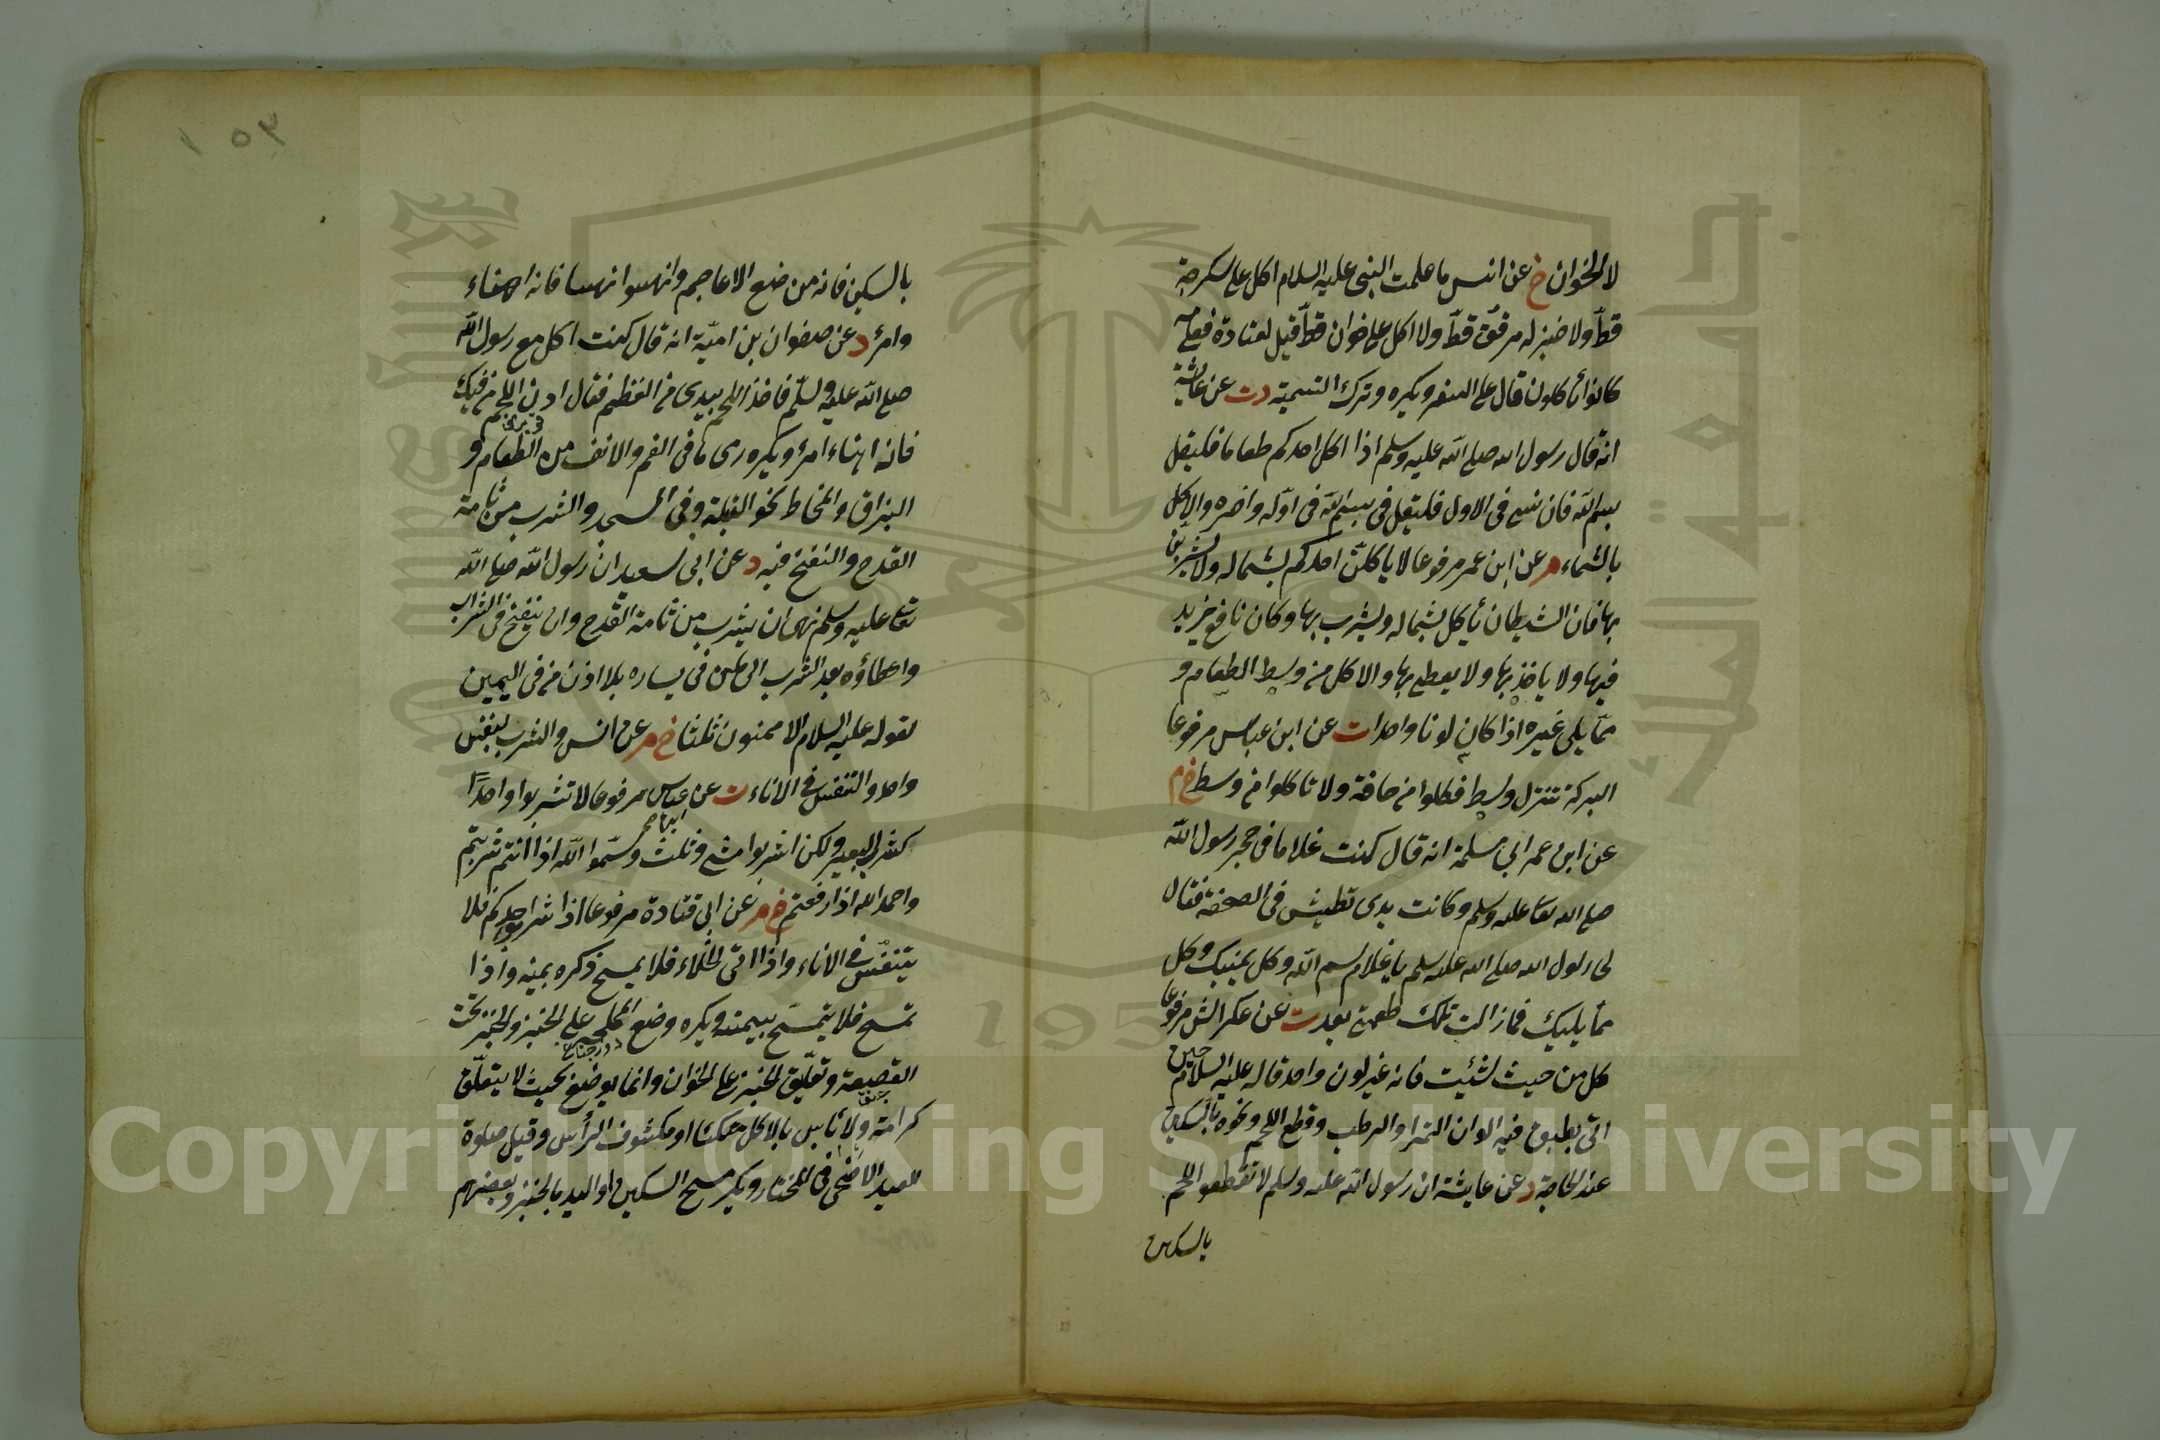 لا الخوان خ عن انس ما علمت النبى عليه السلام اكل على سكرجة
قط ولا خبز له مرقق قط ولا اكل على خوان قط قيل لقتادة فعلى مه
كانوا يأكلون قال على السفر ويكره وترك التسمية دت عن عايشة
انه قال رسول الله صلى الله عليه وسلم اذا اكل احدكم طعاما فليقل
بسم الله فان نسى فى الاول فليقل فى بسم الله فى اوله واخره والاكل
بالشماء م عن ابن عمر مرفوعا لا ياكلن احدكم بشماله ولا يشربن
بها فان الشيطان يأكل بشماله ويشرب بها وكان نافع يزيد
فيها ولا ياخذ بها ولا يعطى بها والاكل من وسط الطعام و
مما يلى غيره اذا كان لونا واحدا ت عن ابن عباس مرفوعا
البركة تنزل وسط فكلوا من حافة ولا تاكلوا من وسط خ م
عن ابن عمر ابى سلمة انه قال كنت غلاما فى حجر رسول الله
صلى الله تعا عليه وسلم وكانت يدى تطيش فى الصحفة فقال
لى رسول الله صلى الله عليه وسلم يا غلام سم الله وكل بيمينك وكل
مما يليك فما زالت تلك طعمتى بعد ت عن عكراش مرفوعا
كل من حيث شئت فانه غير لون واحد قاله عليه السلام حين
اتى بطبق فيه الوان التمر او الرطب وقطع اللحم ونحوه بالسكين
عند الحاجة د عن عايشة ان رسول الله عليه وسلم لا تقطعوا اللحم
بالسكين
١٥٣
بالسكين فانه من صنع الاعاجم وانهسوا نهسا فانه اهناء
وامرأ د عن صفوان بن امية انه قال كنت اكل مع رسول الله
صلى الله عليه وسلم فاخذ اللحم بيدى من العظم فقال ادن اللحم من فيك
فانه اهناء امرأ ويكره رمى ما فى الفم والانف من الطعام و
البزاق والمخاط نحو القبلة وفى المسجد والشرب من ثلمة
القدح والنفخ فيه د عن ابى سعيد ان رسول الله صلى الله
تعا عليه وسلم نهى ان يشرب من ثلمة القدح وان ينفخ فى الشراب
واعطاؤه بعد الشرب الى من فى يساره بلا اذن من فى اليمين
لقوله عليه السلام الايمنون ثلثا خ م عن انس والشرب بنفس
واحد والتنفس فى الاناء ت عن عباس مرفوعا لا تشربوا واحدا
كشرب البعير ولكن اشربوا مثنى وثلث وسموا الله اذا انتم شربتم
واحمد الله اذا رفعتم خ م عن ابى قتادة مرفوعا اذا شرب احدكم فلا
يتنفس فى الاناء واذا اتى الخلاء فلا يمسح ذكره بيمينه واذا
تمسح فلا يتمسح بيمينه ويكره وضع المملحة على الخبز والخبز تحت
القصعة وتعليق الخبز على الخوان وانما يوضع بحيث لا يتعلق
كرامة ولا بأس بالاكل متكئا او مكشوف الرأس وقيل صلوة
العيد الاضحى فى المختار ويكره مسح السكين او اليد بالخبز وبعضهم
Copyright © King Saud University
1957